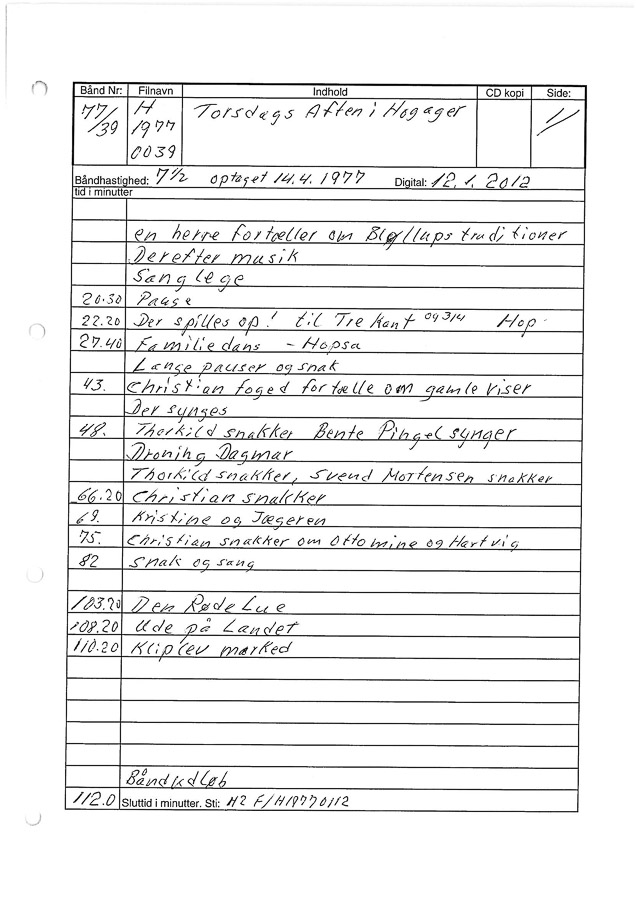 Bånd Nr: Filnavn Indhold CD kopi Side:
77/39 H 1977 0039 Torsdags Aften i Hogager 1/
Båndhastighed: 7½ optaget 14.4.1977 Digital: 12.1.2012
tid i minutter
en herre fortæller om Bløllups traditioner
Derefter musik
Sanglege
20.30 Pause
22.20 Der spilles op! til Tre Kant og 3/4 Hop
27.40 Familie dans - Hopsa
Lange pauser og snak
43. Christian foged fortælle om gamle viser
Der synges
48. Thorkild snakker Bente Pingel synger
Droning Dagmar
Thorkild snakker, Svend Mortensen snakker
66.20 Christian snakker
69. Kristine og Jægeren
75. Christian snakker om Ottomine og Hartvig
82 Snak og sang
103.20 Den Røde Lue
108.20 Ude på Landet
110.20 Kliplev marked
112.0 Sluttid i minutter. Sti: H2 F/H19770112